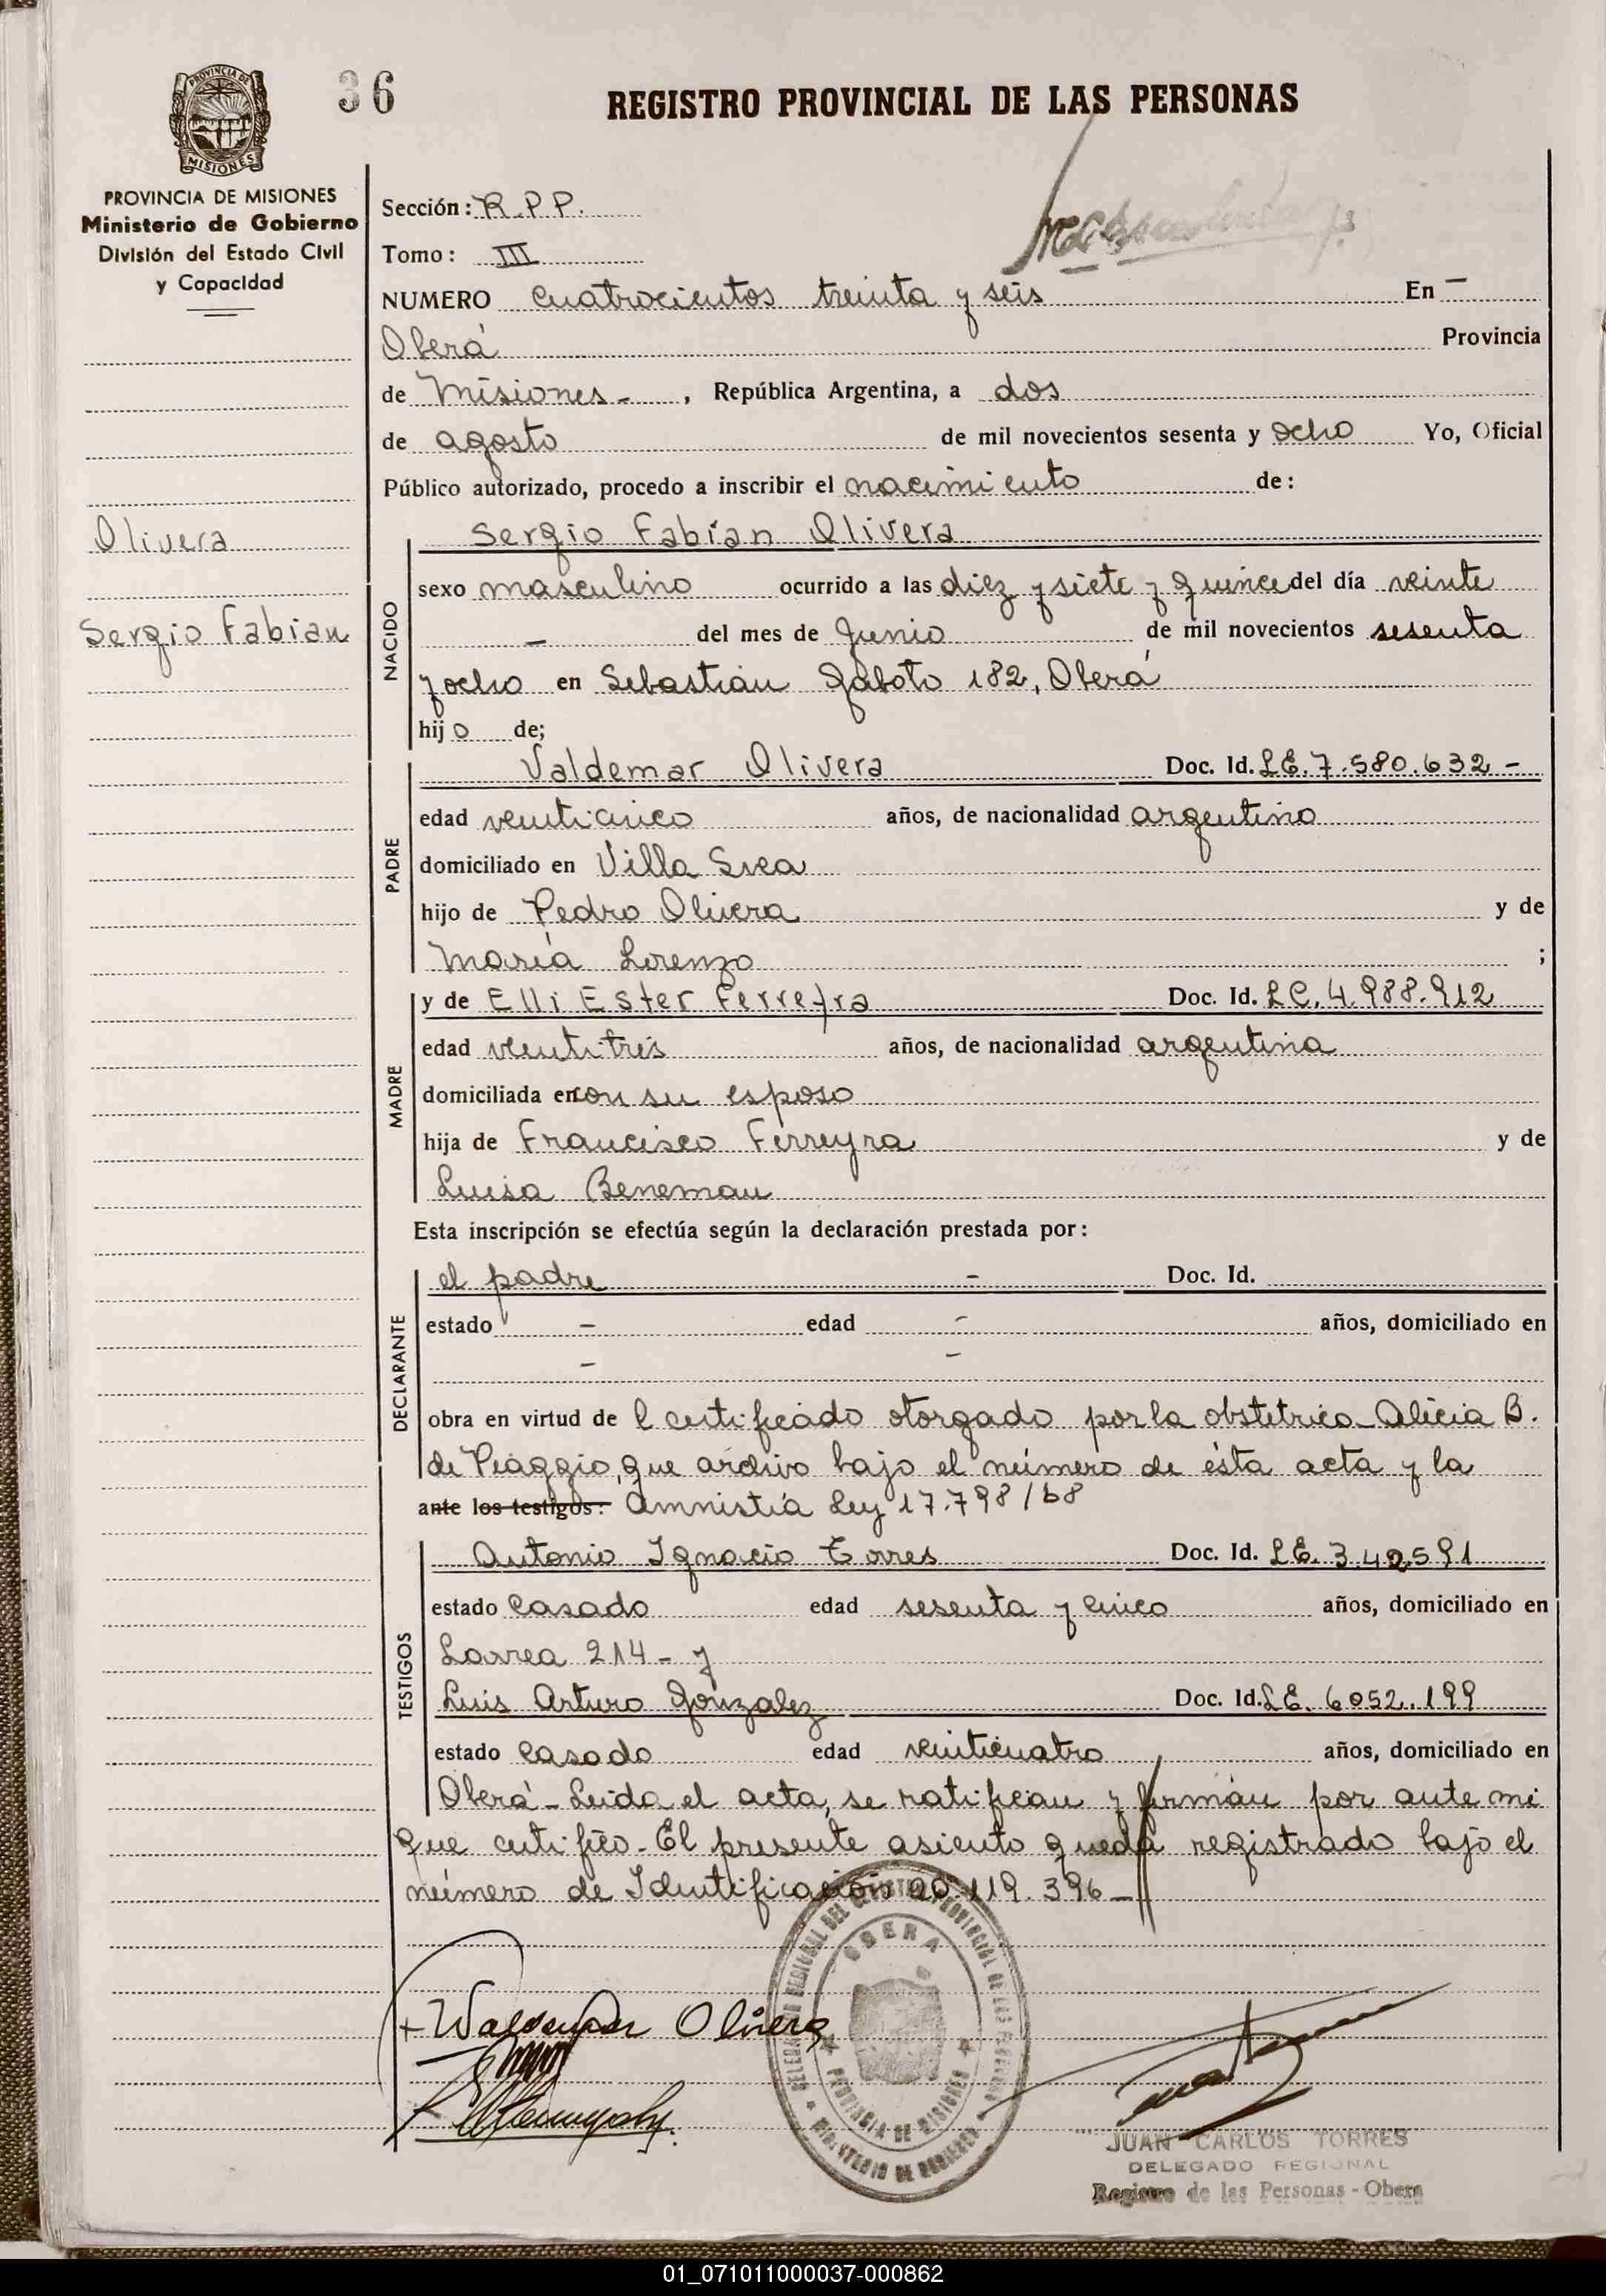 36
REGISTRO PROVINCIAL DE LAS PERSONAS
PROVINCIA DE
MISIONES
PROVINCIA DE MISIONES
Ministerio de Gobierno
División del Estado Civil
y Capacidad
Sección: R.P.P.
Tomo: III
NUMERO cuatrocientos treinta y seis En –
Oberá Provincia
de Misiones - , República Argentina, a dos
de agosto de mil novecientos sesenta y ocho Yo, Oficial
Público autorizado, procedo a inscribir el nacimiento de:
Olivera
Sergio Fabian
NACIDO
Sergio Fabián Olivera
sexo masculino ocurrido a las diez y siete y quince del día veinte
– del mes de Junio de mil novecientos sesenta
y ocho en Sebastián Gaboto 182, Oberá
hijo de;
PADRE
Valdemar Olivera Doc. Id. LE. 7.580.632 -
edad venticinco años, de nacionalidad argentino
domiciliado en Villa Svea
hijo de Pedro Olivera y de
María Lorenzo ;
MADRE
y de Elli Ester Ferreyra Doc. Id. LC. 4.988.912
edad ventitrés años, de nacionalidad argentina
domiciliada en con su esposo
hija de Francisco Ferreyra y de
Luisa Beneman
Esta inscripción se efectúa según la declaración prestada por:
DECLARANTE
el padre – Doc. Id.
estado – edad – años, domiciliado en
– –
obra en virtud de l certificado otorgado por la obstetrica Alicia B.
de Piaggio, que archivo bajo el número de ésta acta y la
ante los testigos: Amnistía Ley 17.798/68
TESTIGOS
Antonio Ignacio Torres Doc. Id. LE. 3.42591
estado casado edad sesenta y cinco años, domiciliado en
Larrea 214 - y
Luis Arturo González Doc. Id. LE. 6052.199
estado casado edad veinticuatro años, domiciliado en
Oberá - Leida el acta, se ratifican y firman por ante mi
que certifico - El presente asiento queda registrado bajo el
número de Identificación 20.119.396 -
Waldemar Olivera
DELEGACION REGIONAL DEL REGISTRO PROVINCIAL DE LAS PERSONAS
OBERA
PROVINCIA DE MISIONES
MINISTERIO DE GOBIERNO
JUAN CARLOS TORRES
DELEGADO REGIONAL
Registro de las Personas - Obera
01_071011000037-000862